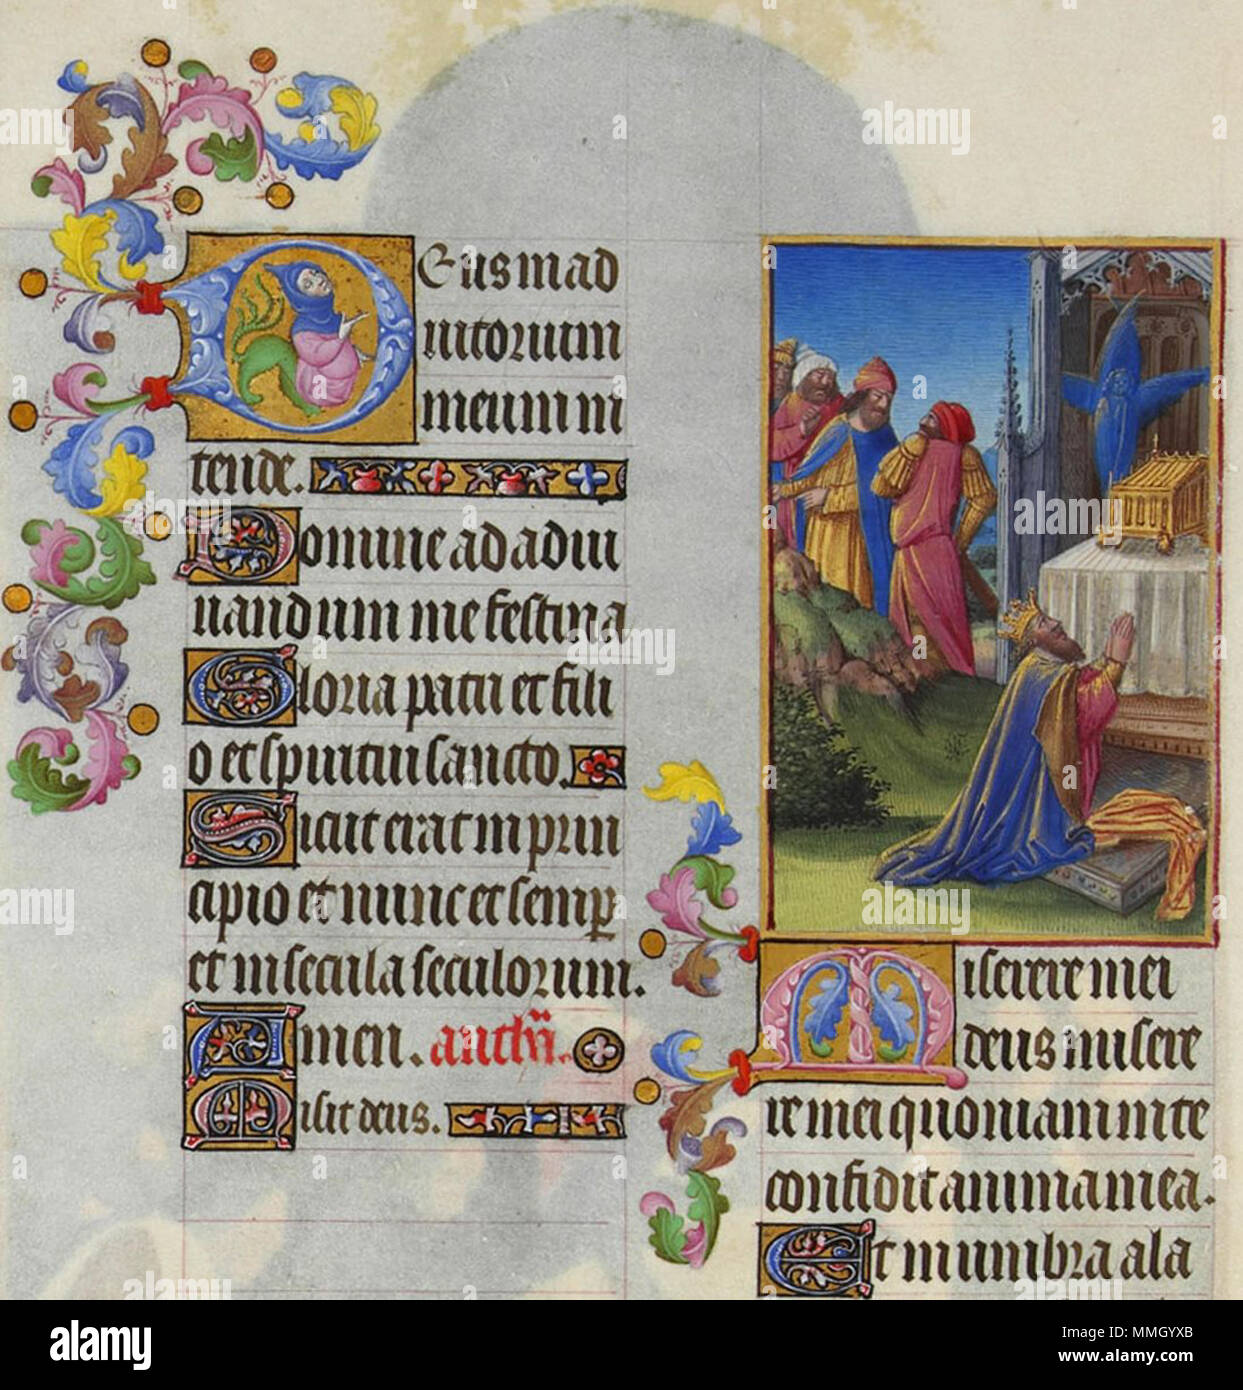 Deus in ad
iutorium
meum in
tende.
Domine ad adiu
uandum me festina
Gloria patri et fili
o et spiritui sancto.
Sicut erat in prin
cipio et nunc et semp
et in secula seculorum.
Amen. anth̄.
Misit deus.
Miserere mei
deus misere
re mei quoniam in te
confidit anima mea.
Et in umbra ala
alamy
Image ID: MMGYXB
www.alamy.com